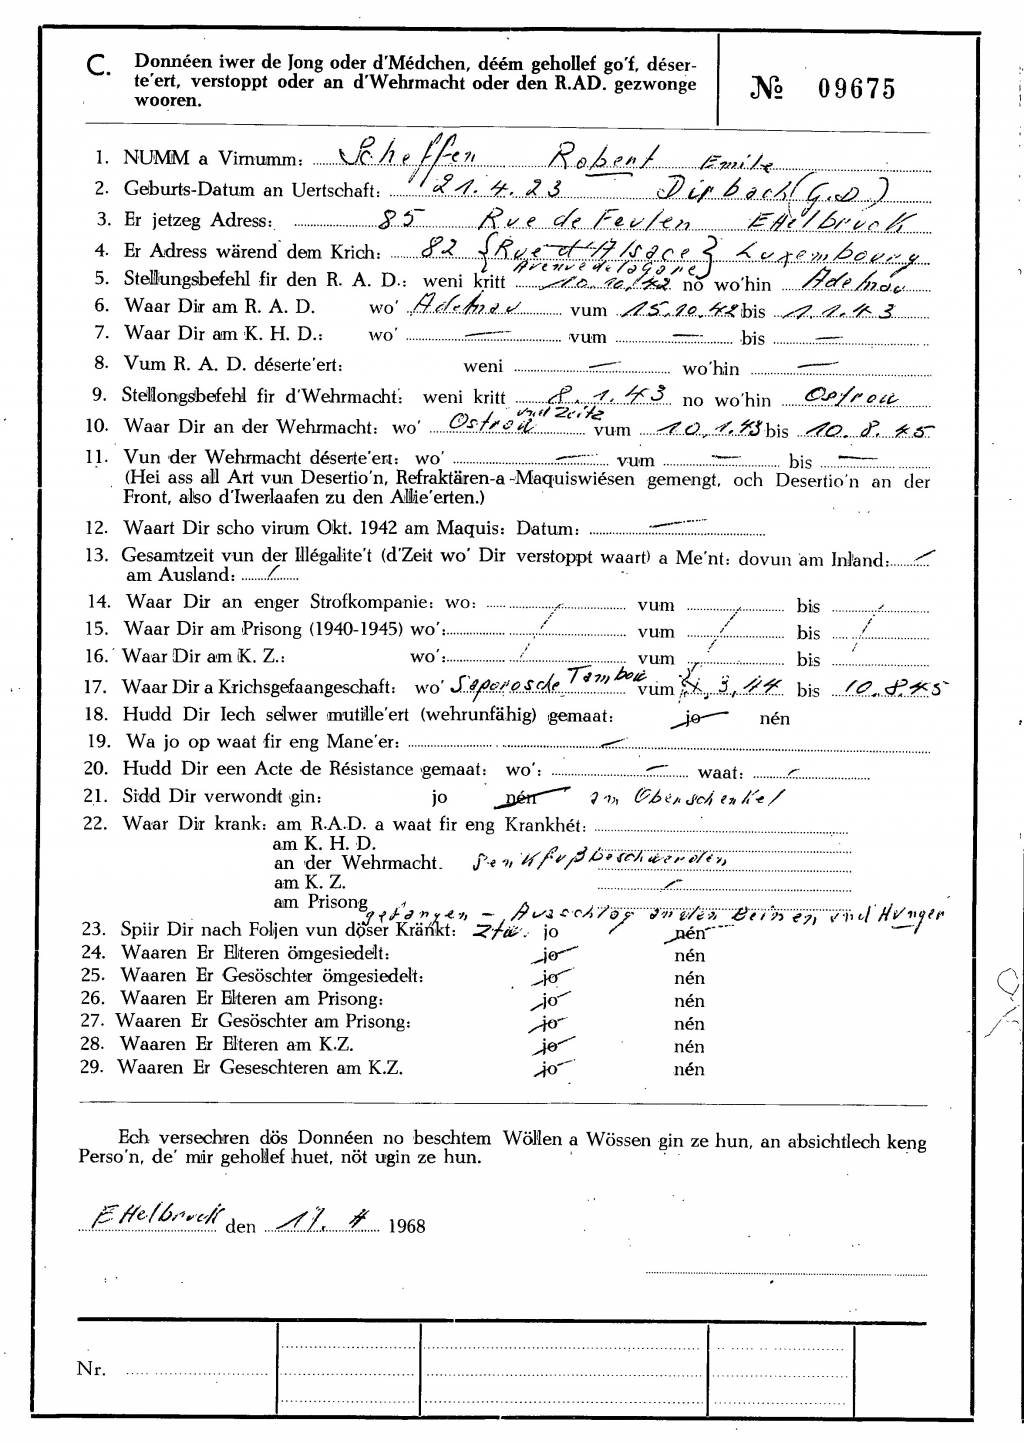 C. Donnéen iwer de Jong oder d'Médchen, déém gehollef go'f, déser-
te'ert, verstoppt oder an d'Wehrmacht oder den R.AD. gezwonge
wooren.
№ 09675
1. NUMM a Virnumm: Scheffen Robert Emile
2. Geburts-Datum an Uertschaft: 21.4.23 Dirbach (G.D.)
3. Er jetzeg Adress: 85 Rue de Feulen Ettelbruck
4. Er Adress wärend dem Krich: 82 {Rue d'Alsace} Luxembourg
Avenue de la Gare
5. Stellungsbefehl fir den R. A. D.: weni kritt 10.10.42 no wo'hin Adelnau
6. Waar Dir am R. A. D. wo' Adelnau vum 15.10.42 bis 1.1.43
7. Waar Dir am K. H. D.: wo' — vum — bis —
8. Vum R. A. D. déserte'ert: weni — wo'hin —
9. Stellongsbefehl fir d'Wehrmacht: weni kritt 8.1.43 no wo'hin Ostrow
und Zeitz
10. Waar Dir an der Wehrmacht: wo' Ostrow vum 10.1.43 bis 10.8.45
11. Vun der Wehrmacht déserte'ert: wo' — vum — bis —
(Hei ass all Art vun Desertio'n, Refraktären-a-Maquiswiésen gemengt, och Desertio'n an der
Front, also d'Iwerlaafen zu den Allie'erten.)
12. Waart Dir scho virum Okt. 1942 am Maquis: Datum: —
13. Gesamtzeit vun der Illégalite't (d'Zeit wo' Dir verstoppt waart) a Me'nt: dovun am Inland: /
am Ausland: /
14. Waar Dir an enger Strofkompanie: wo: / vum / bis /
15. Waar Dir am Prisong (1940-1945) wo': / vum / bis /
16. Waar Dir am K. Z.: wo': / vum / bis /
17. Waar Dir a Krichsgefaangeschaft: wo' Saporosche Tambow vum 3.44 bis 10.8.45
18. Hudd Dir Iech selwer mutille'ert (wehrunfähig) gemaat: jo nén
19. Wa jo op waat fir eng Mane'er: —
20. Hudd Dir een Acte de Résistance gemaat: wo': — waat: —
21. Sidd Dir verwondt gin: jo nén am Oberschenkel
22. Waar Dir krank: am R.A.D. a waat fir eng Krankhét:
am K. H. D.
an der Wehrmacht. Senkfußbeschwerden
am K. Z. —
am Prisong
gefangen - Ausschlag an den Beinen, und Hunger
23. Spiir Dir nach Foljen vun döser Kränkt: jo nén
24. Waaren Er Elteren ömgesiedelt: jo nén
25. Waaren Er Gesöschter ömgesiedelt: jo nén
26. Waaren Er Elteren am Prisong: jo nén
27. Waaren Er Gesöschter am Prisong: jo nén
28. Waaren Er Elteren am K.Z. jo nén
29. Waaren Er Geseschteren am K.Z. jo nén
Ech versechren dös Donnéen no beschtem Wöllen a Wössen gin ze hun, an absichtlech keng
Perso'n, de' mir gehollef huet, nöt ugin ze hun.
Ettelbruck den 17. 4 1968
Nr.